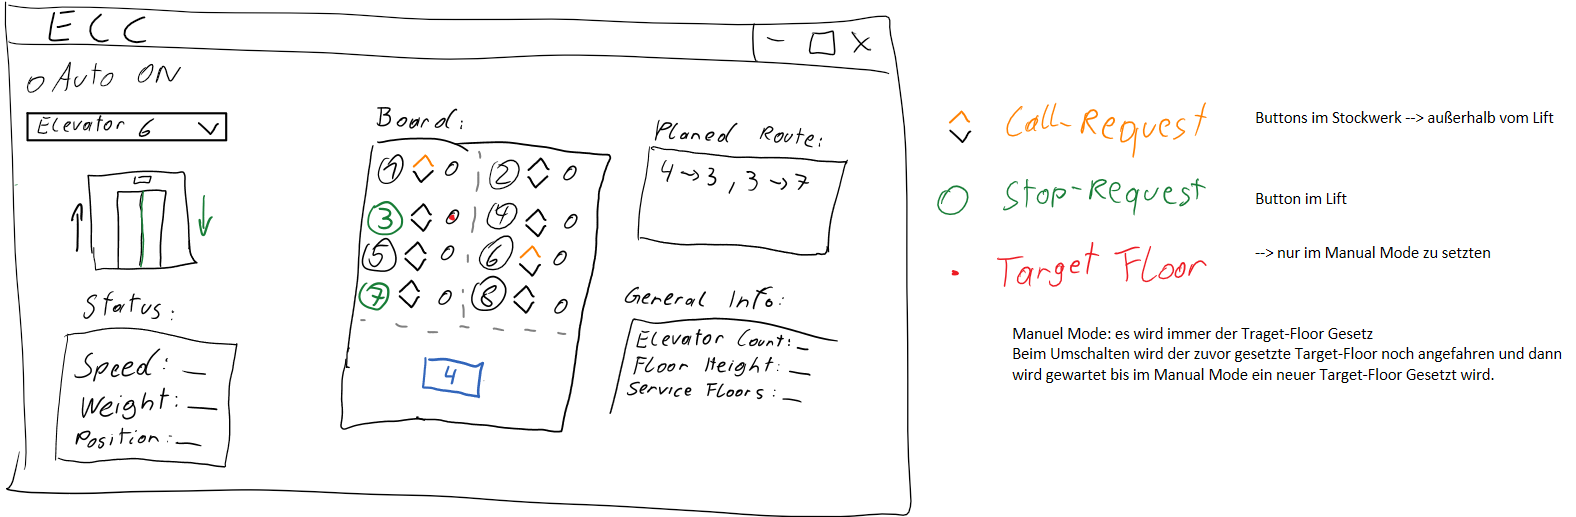 ECC
- □ X
o Auto ON
Elevator 6
Board:
1 2
3 4
5 6
7 8
4
Planed Route:
4→3, 3→7
Status:
Speed: _
Weight: _
Position: _
General Info:
Elevator Count: _
Floor Height: _
Service Floors: _
Call-Request
Buttons im Stockwerk --> außerhalb vom Lift
Stop-Request
Button im Lift
Target Floor
--> nur im Manual Mode zu setzten
Manuel Mode: es wird immer der Traget-Floor Gesetz
Beim Umschalten wird der zuvor gesetzte Target-Floor noch angefahren und dann
wird gewartet bis im Manual Mode ein neuer Target-Floor Gesetzt wird.